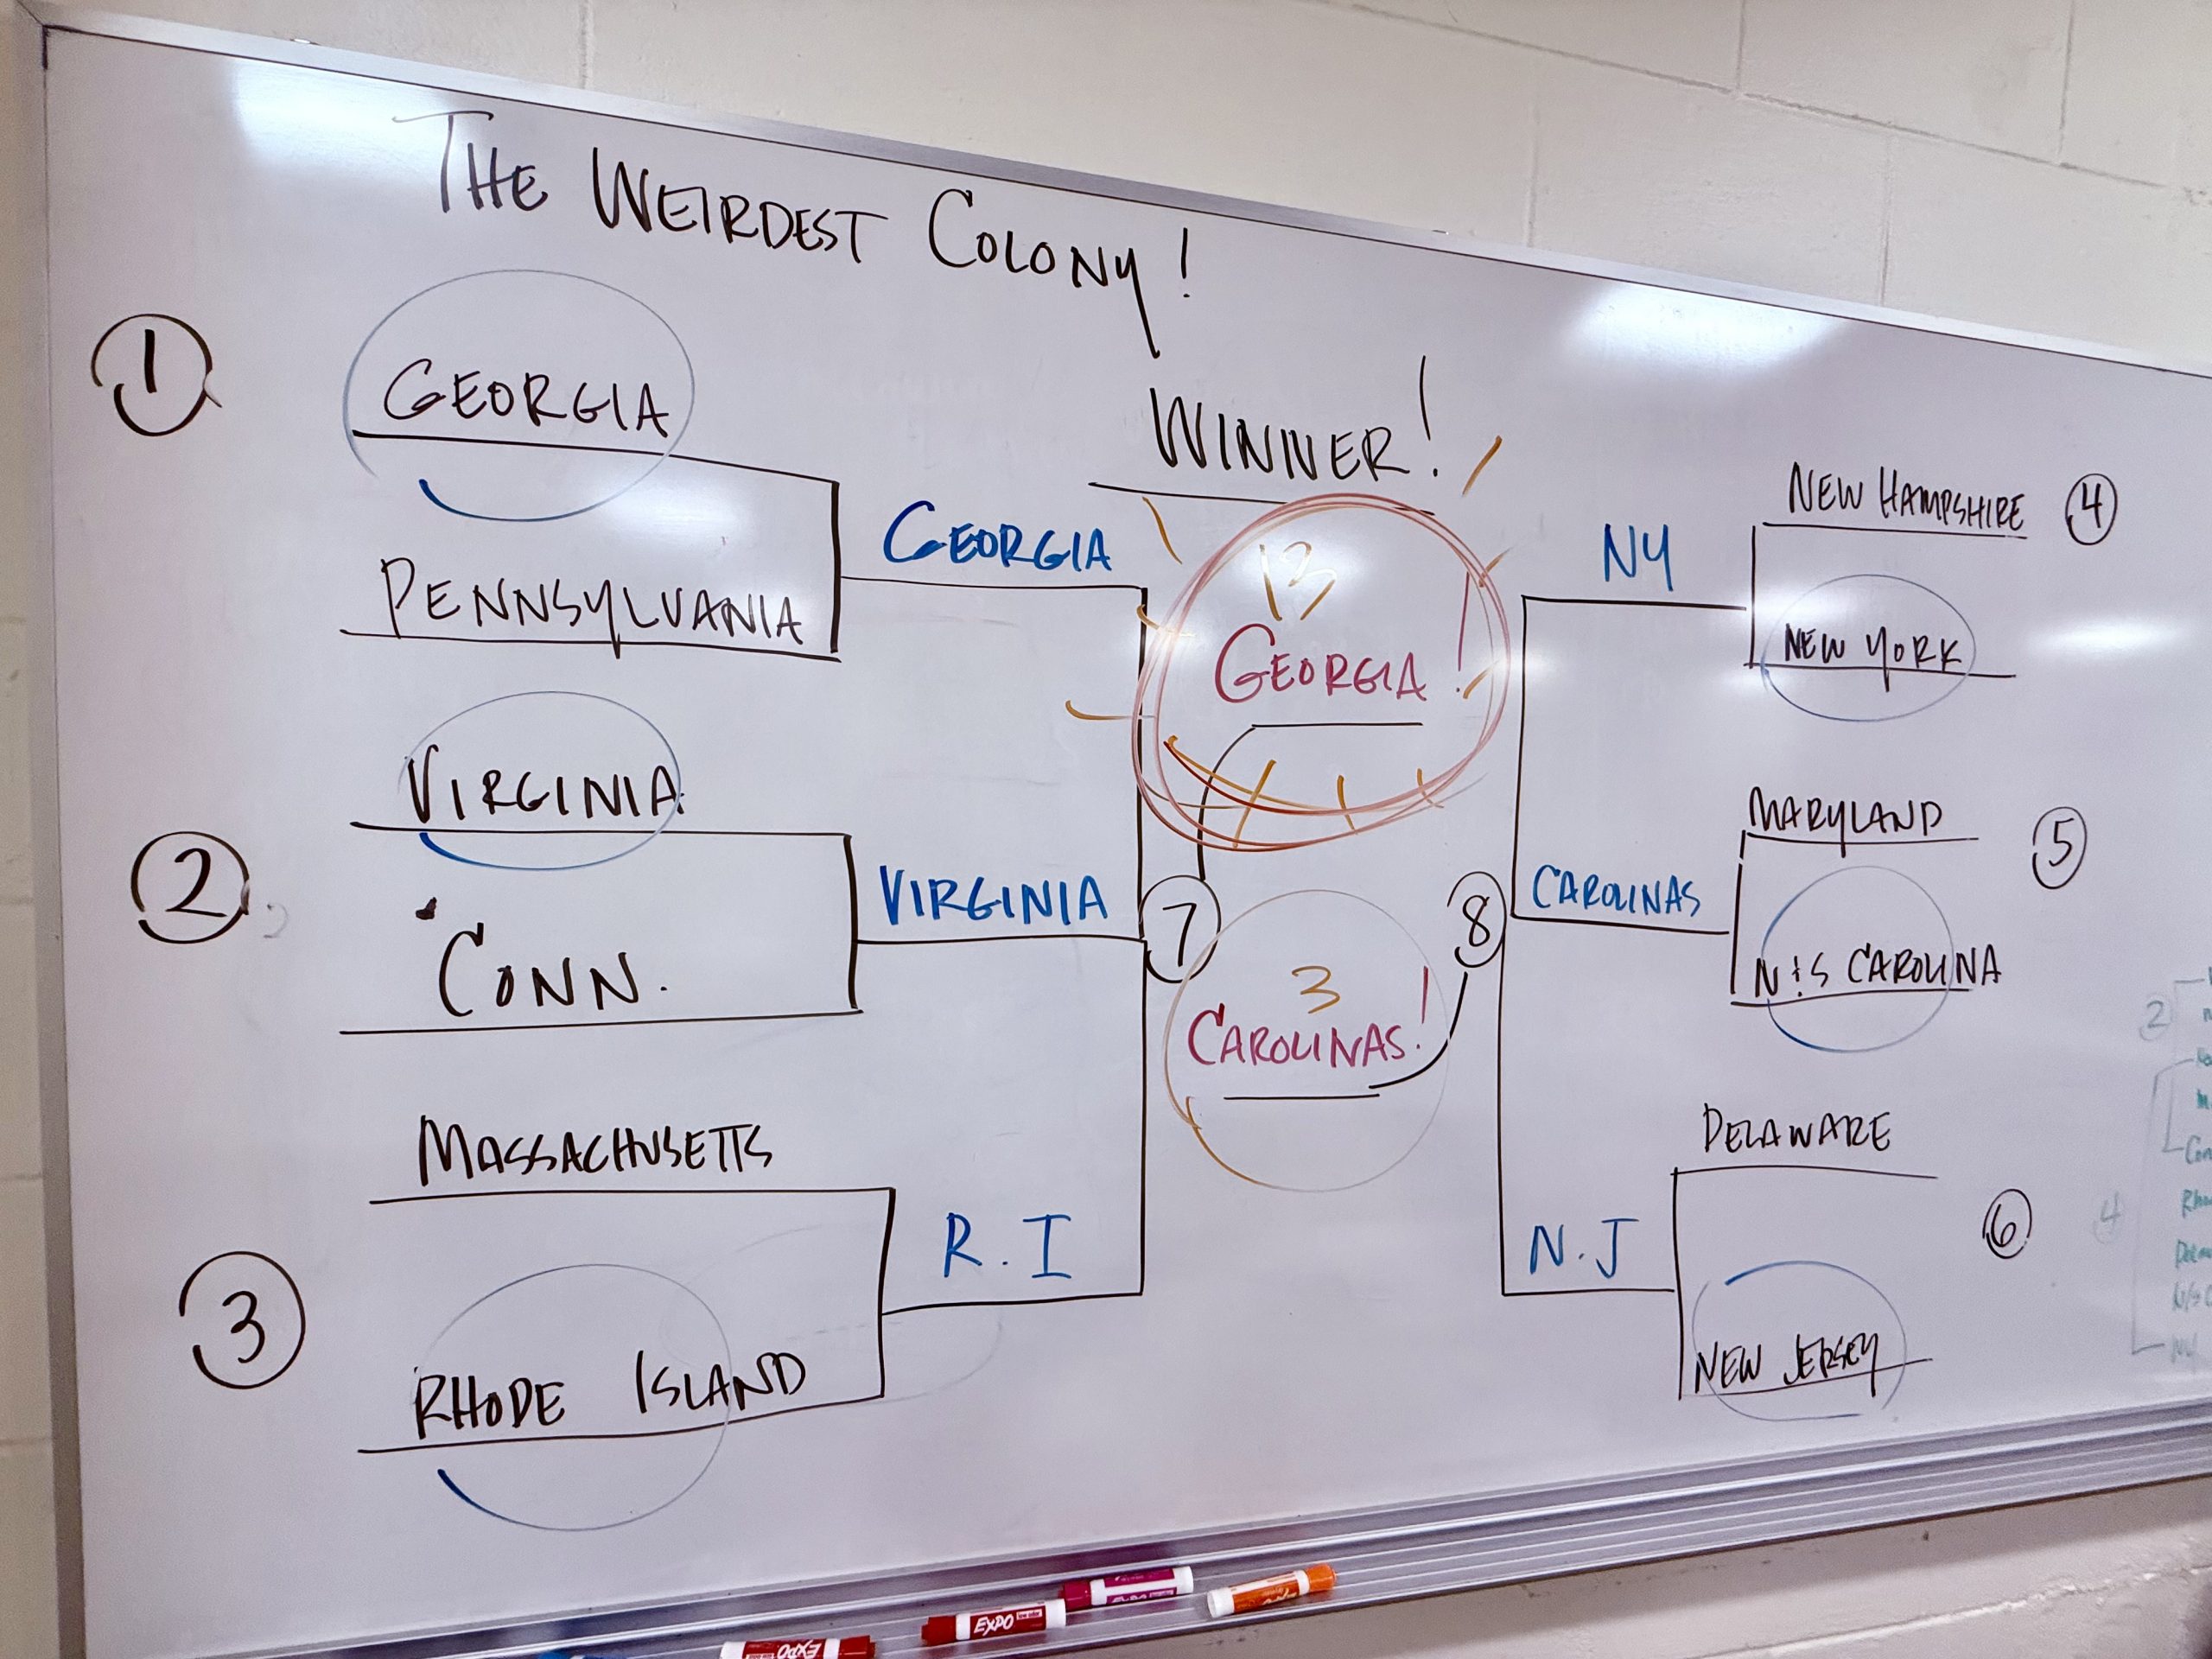 THE WEIRDEST COLONY!
WINNER!
1
GEORGIA
PENNSYLVANIA
GEORGIA
2
VIRGINIA
CONN.
VIRGINIA
3
MASSACHUSETTS
RHODE ISLAND
R.I
7
13
GEORGIA!
3
CAROLINAS!
8
NY
NEW HAMPSHIRE
4
NEW YORK
CAROLINAS
MARYLAND
5
N & S CAROLINA
N.J
DELAWARE
6
NEW JERSEY
2
4
N/S C
NY
EXPO
EXPO
EXPO